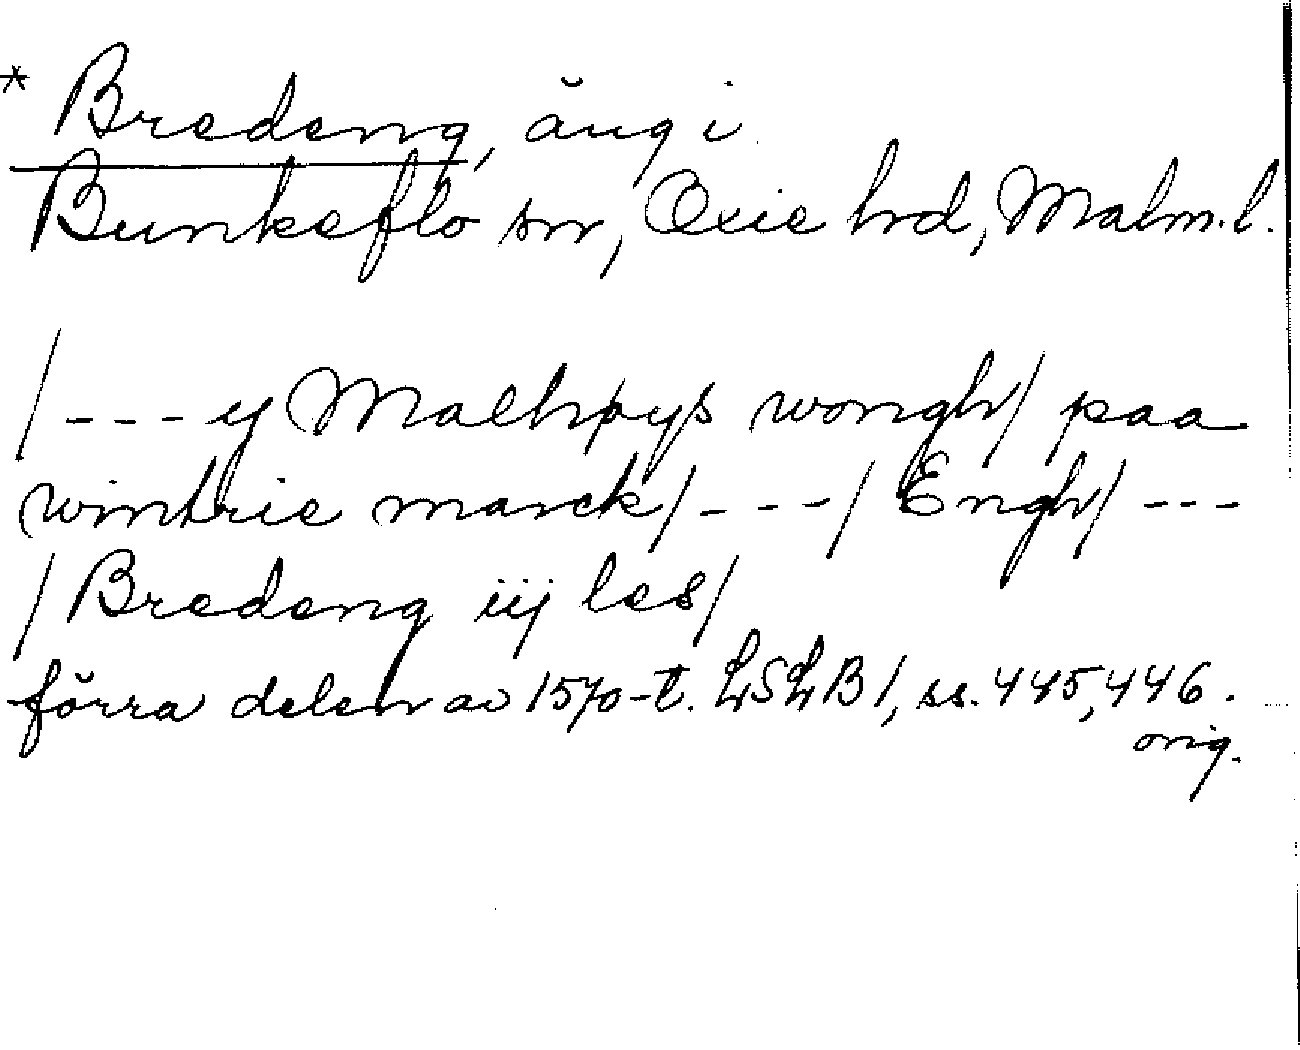 * Bredeng, äng i
Bunkeflo sn, Oxie hd, Malm. l.
/ - - - y Malhøys wongh / paa
wintrie marck / - - - / Engh / - - -
/ Bredeng iij les /
förra delen av 1570-t. LSLB 1, ss. 445, 446.
orig.